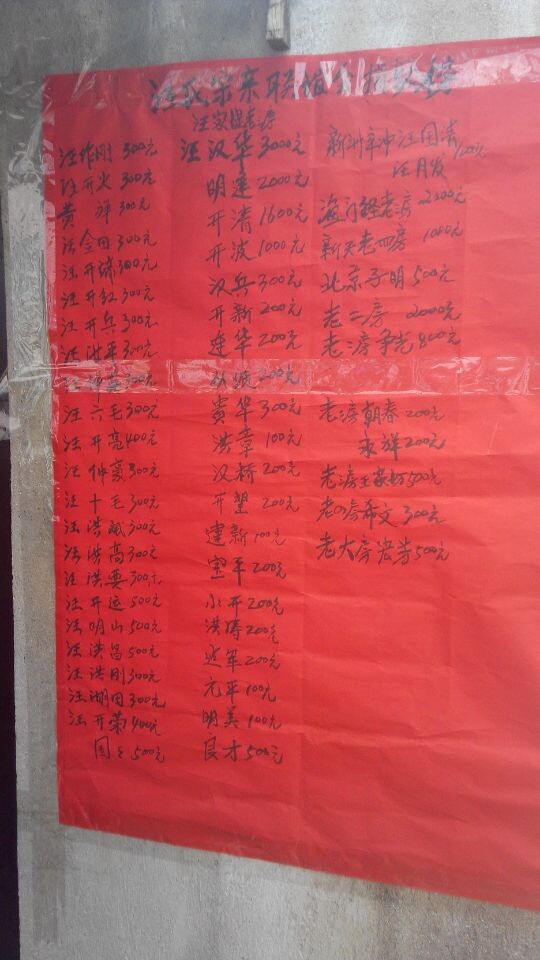 汪氏宗亲联谊会捐款榜
汪作刚 300元
汪开火 300元
黄 萍 300元
汪金田 300元
汪开球 300元
汪开红 300元
汪开兵 300元
汪洪平 300元
汪六毛 300元
汪开亮 400元
汪仲爱 300元
汪十毛 300元
汪洪斌 300元
汪洪高 300元
汪洪要 300元
汪开运 500元
汪明山 500元
汪洪昌 500元
汪洪刚 300元
汪湖田 300元
汪开荣 400元
500元
汪汉华 3000元
明建 2000元
开清 1600元
开波 1000元
汉兵 300元
开新 200元
建华 200元
200元
贵华 300元
洪章 100元
汉桥 200元
开望 200元
建新 100元
宝平 200元
小开 200元
洪涛 200元
200元
元平 100元
明美 100元
良才 500元
新洲辛冲汪国清
汪月发 100元
老房 2300元
老四房 1000元
北京子明 500元
老二房 2000元
老二房争先 800元
老二房朝春 200元
永祥 200元
500元
希文 300元
老大房宏寿 500元